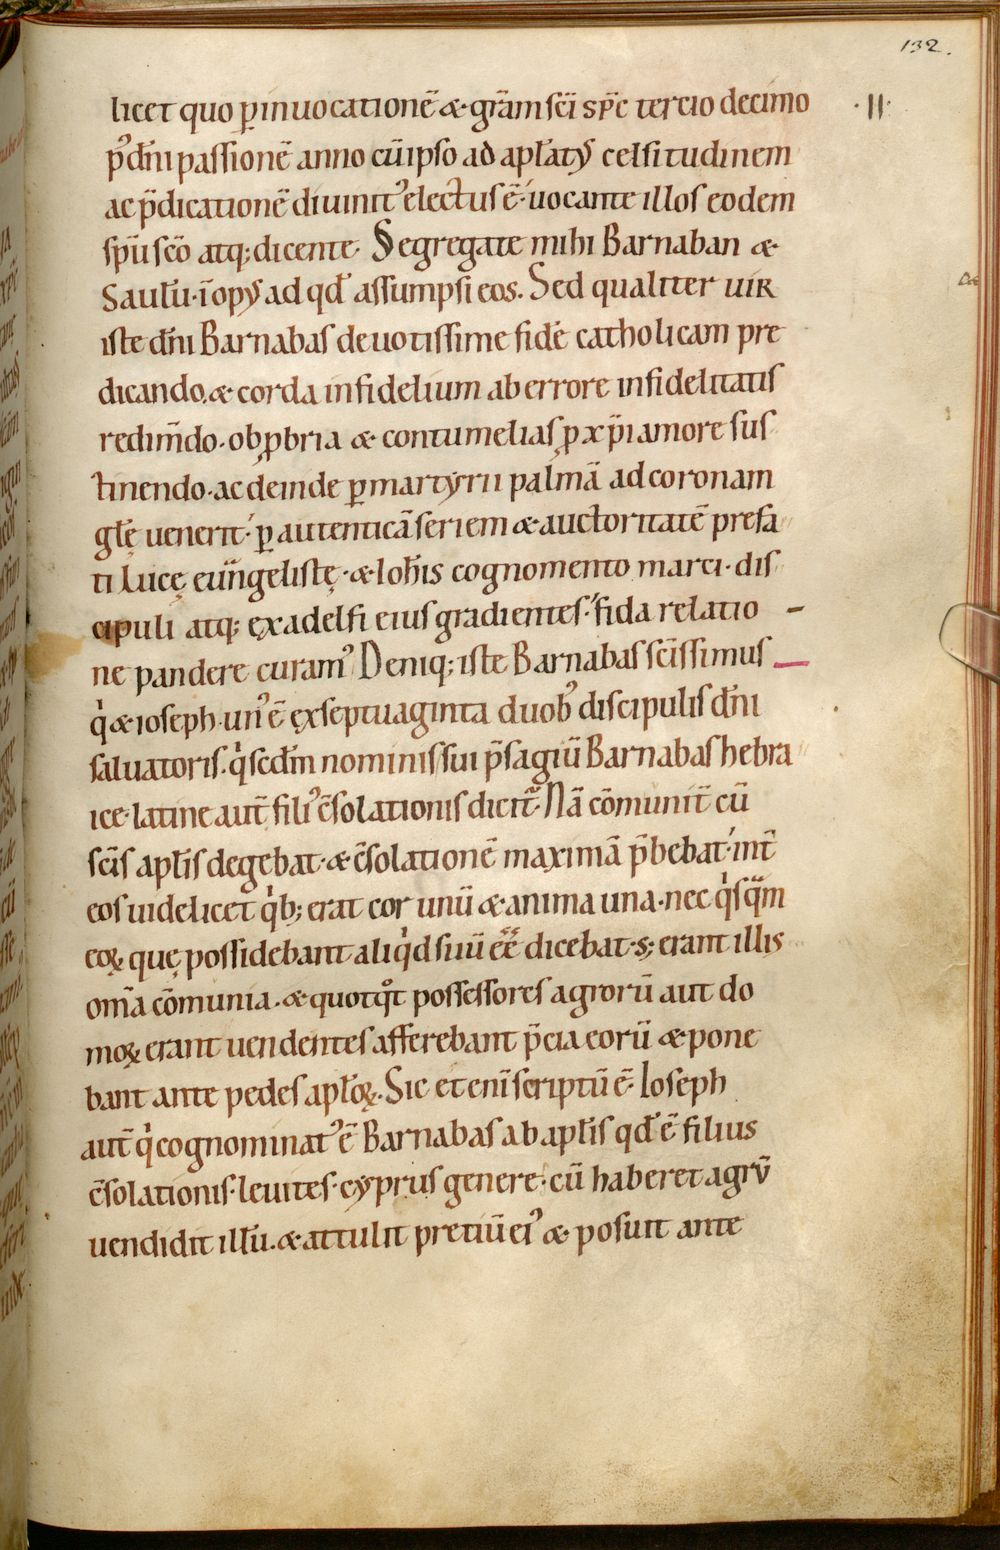 132.
licet quo ꝑ inuocationē & gr̄am sc̄i sp̄c tercio decimo ·II·
p᷒ dn̄i passionē anno cū ipso ad apl̄at᷒ celsitudinem
ac p̄dicationē diuinit᷒ electus ē· uocante illos eodem
sp̄u sc̄o atq; dicente· Segregate mihi Barnaban &
Saulū· ī op᷒ ad qd̄ assumpsi eos. Sed qualiter uir
iste dn̄i Barnabas deuotissime fidē catholicam pre
dicando, & corda infidelium ab errore infidelitatis
redim̄do· obꝓbria & contumelias ꝓ xp̄i amore sus
tinendo· ac deinde ꝑ martyrii palmā ad coronam
gl̄ę uenerit· ꝑ autenticā seriem & auctoritatē prefa
ti Lucę eun̄gelistę· & Ioh̄is cognomento marci· dis
cipuli atq; exadelfi eius gradientes· fida relatio –
ne pandere curam᷒ Deniq; iste Barnabas sc̄issimus
qͥ & ioseph· un᷒ ē ex septuaginta duob᷒ discipulis dn̄i
saluatoris· qͥ scd̄m nominis sui p̄sagiū Barnabas hebra
ice· latine aut̄ fili᷒ c̄solationis dicit᷑· Nā cōmunit̄ cū
sc̄is apl̄is degebat· & c̄solationē maximā p̄bebat· int̄
eos uidelicet qͥb; erat cor unū & anima una· nec qͥsqᷓm
eoꝝ que possidebant aliqͥd suū ēē dicebat· s; erant illis
om̄a cōmunia· & quotqͦt possessores agrorū aut do
moꝝ erant uendentes afferebant p̄cia eorū & pone
bant ante pedes apl̄oꝝ. Sic et enī scriptū ē· Ioseph
aut̄ qͥ cognominat᷒ ē Barnabas ab apl̄is qd̄ ē filius
c̄solationis· leuites· cyprus genere· cū haberet agrū
uendidit illū· & attulit pretiū ei᷒ & posuit ante